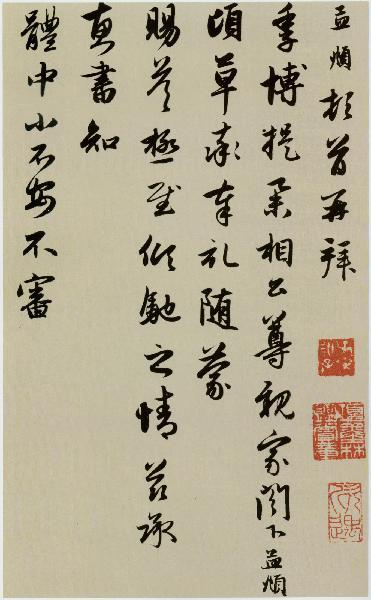 孟頫頓首再拜
季博提舉相公尊親家閣下孟頫
頃草率奉礼随蒙
賜答極至傾馳之情茲承
惠書知
體中小不安不審